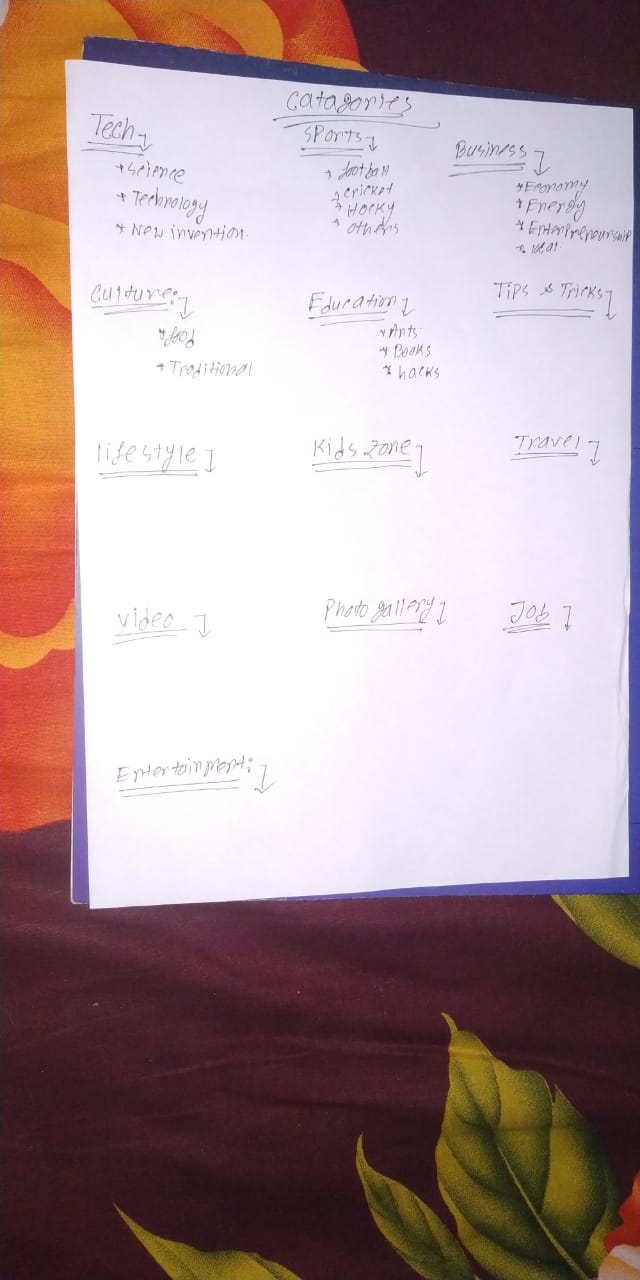 Catagories
Tech
* Science
* Technology
* New invention.
Sports
* football
* cricket
* Hocky
* others
Business
* Economy
* Energy
* Enterpreneurship
Culture:
* food
* Traditional
Education
* Arts
* Books
* hacks
Tips & Tricks
lifestyle
Kids zone
Travel
video
Photo gallery
Job
Entertainment: